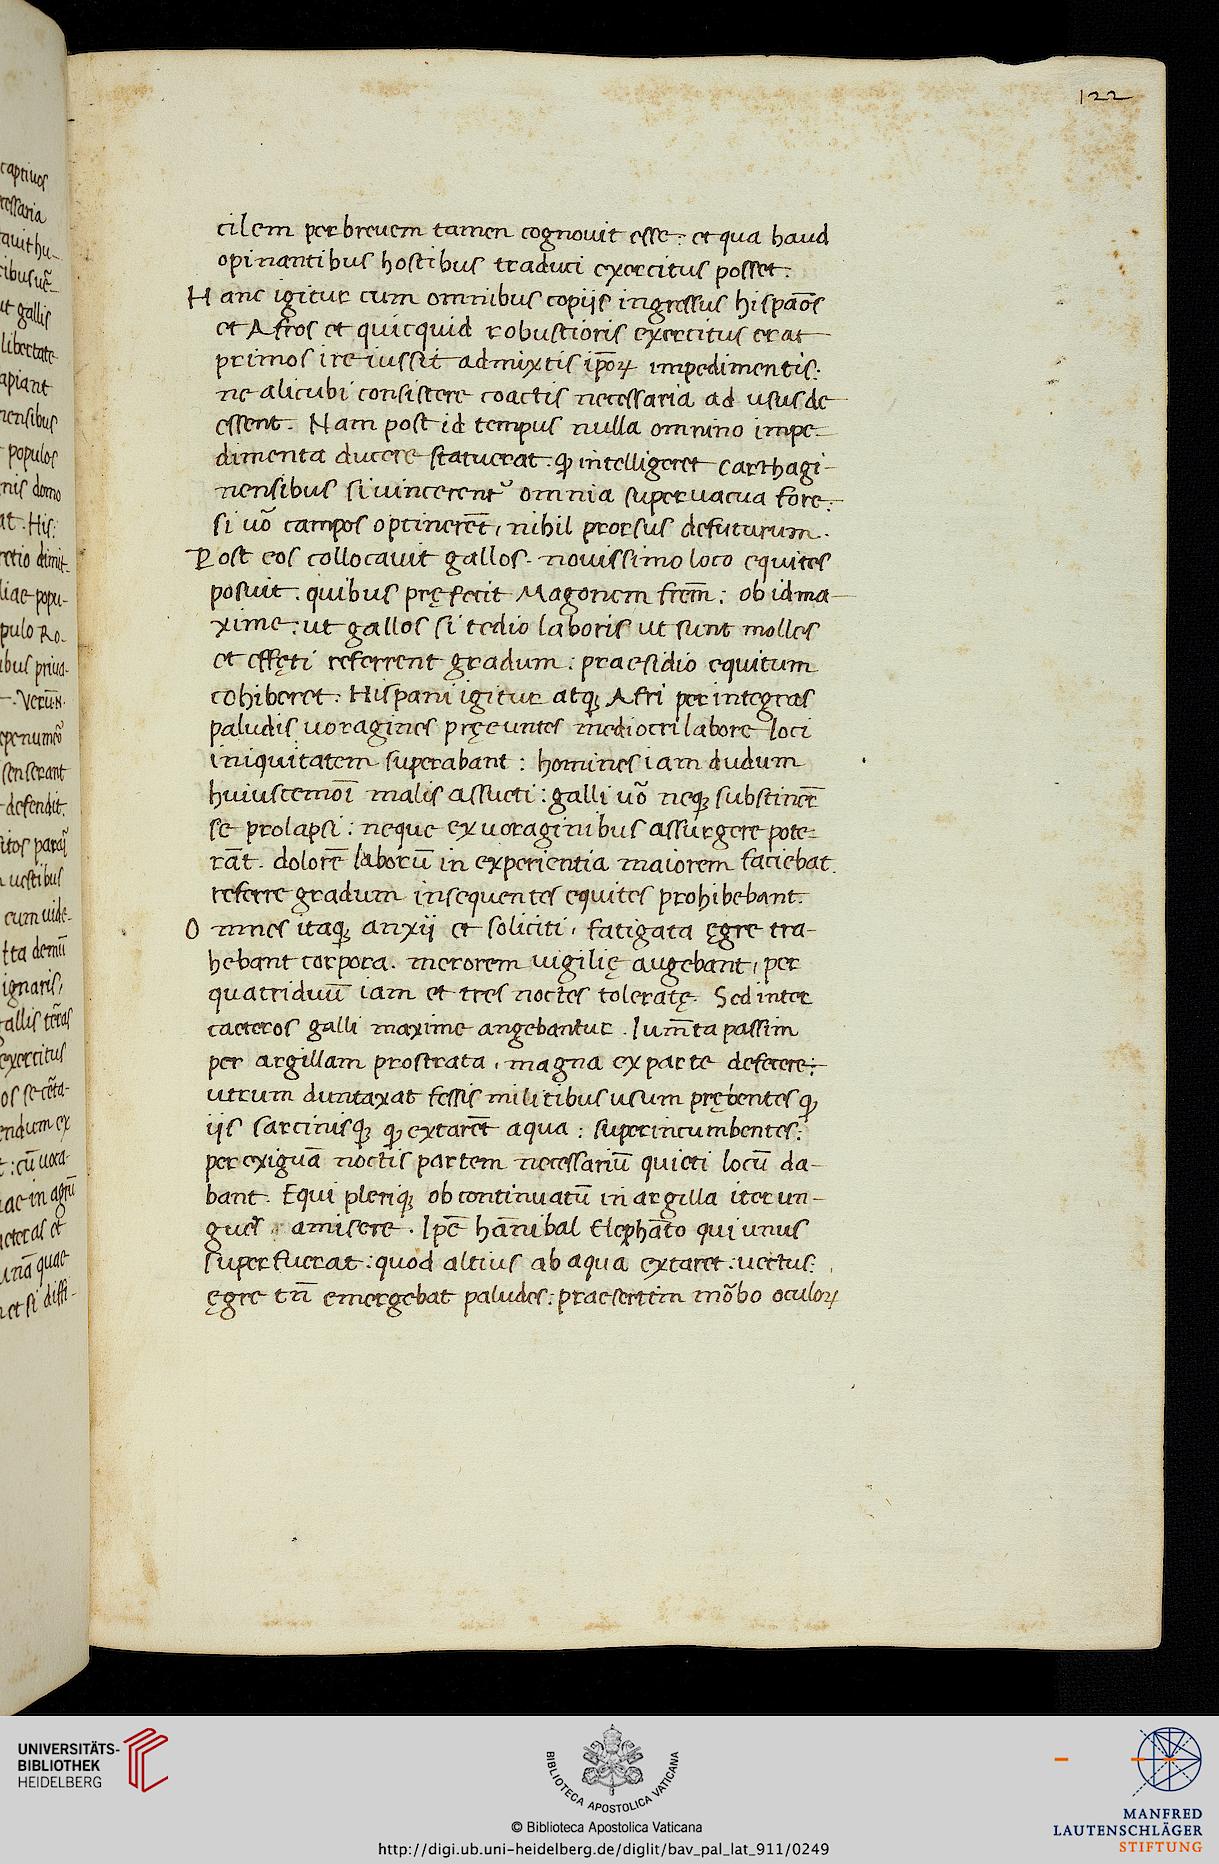 122
cilem per breuem tamen cognouit esse: et qua haud
opinantibus hostibus traduci exercitus posset.
Hanc igitur cum omnibus copijs ingressus hispãos
et Afros et quicquid robustioris exercitus erat
primos ire iussit admixtis ip̃oꝝ impedimentis:
ne alicubi consistere coactis necessaria ad usus de
essent. Nam post id tempus nulla omnino impe-
dimenta ducere statuerat. ꝙ intelligeret carthagi-
nensibus si uincerent᷑ omnia superuacua fore:
si uõ campos optinerẽt, nihil prorsus defuturum.
Post eos collocauit gallos. nouissimo loco equites
posuit. quibus pręfecit Magonem frẽm: ob id ma-
xime: ut gallos si tedio laboris ut sunt molles
et effęti referrent gradum: praesidio equitum
cohiberet. Hispani igitur atqꝫ Afri per integras
paludis uoragines pręeuntes mediocri labore loci
iniquitatem superabant: homines iam dudum
huiuscemoĩ malis assueti: galli uõ neqꝫ substinẽt
se prolapsi: neque ex uoraginibus assurgere pote-
rãt. dolorẽ laborũ in experientia maiorem faciebat.
referre gradum insequentes equites prohibebant.
Omnes itaqꝫ anxij et soliciti, fatigata ęgre tra-
hebant corpora. merorem uigilię augebant, per
quatriduũ iam et tres noctes toleratę. Sed inter
caeteros galli maxime angebantur. Iumẽta passim
per argillam prostrata, magna ex parte defecere:
utrum duntaxat fessis militibus usum prębentes ꝙ
ijs sarcinisqꝫ ꝙ extarẽt aqua: superincumbentes:
per exiguã noctis partem necessariũ quieti locũ da-
bant. Equi pleriqꝫ ob continuatũ in argilla iter un-
gues amisere. Ip̃e hãnibal Elephãto qui unus
superfuerat: quod altius ab aqua extaret: uectus:
ęgre tñ emergebat paludes: praesertim mõbo oculoꝝ
UNIVERSITÄTS-
BIBLIOTHEK
HEIDELBERG
BIBLIOTECA APOSTOLICA VATICANA
© Biblioteca Apostolica Vaticana
http://digi.ub.uni-heidelberg.de/diglit/bav_pal_lat_911/0249
MANFRED
LAUTENSCHLÄGER
STIFTUNG